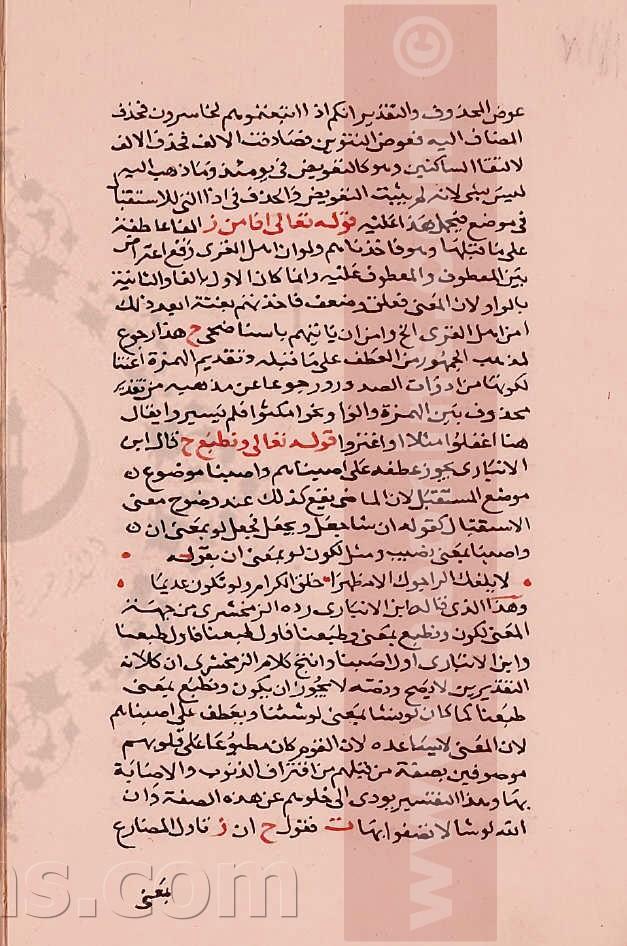 عوض المحذوف والتقدير انكم اذا اتبعتموهم لخاسرون فحذف
المضاف اليه فعوض التنوين فصادفت الالف فحذف الالف
لالتقا الساكنين وهو كالتعويض في يومئذ وما ذهب اليه
ليس بشي لانه لم يثبت التعويض والحذف في اذا التي للاستقبا
في موضع فيحمل هذا عليه قوله تعالى افامن ز الفا عاطفة
على ما قبلها وهو فاخذناهم ولو ان اهل القرى رفع اعتراض
بين المعطوف والمعطوف عليه وانما كان الاول بالفا والثانية
بالواو لان المعنى فعلوا وصنعوا فاخذتهم بغتة ابعد ذلك
امن اهل القرى الخ وامن ان ياتيهم باسنا ضحى ح هذا رجوع
لمذهب الجمهور من العطف على ما قبله وتقديم الهمزة اعتنا
لكونها من ادوات الصدور ورجوعا عن مذهبه من تقدير
محذوف بين الهمزة والواو ونحو امكثوا فلم يسيروا يقال
هنا اغفلوا مثلا او اغتروا قوله تعالى ونطبع ح قال ابن
الانباري يجوز عطفه على اصبناهم واصبنا موضوع
موضع المستقبل لان الماضي يقع كذلك عند وضوح معنى
الاستقبال كقوله ان شا جعل ويجعل فجعل لو بمعنى ان
واصبنا بمعنى نصيب ومثل لكون لو بمعنى ان بقوله
لا يلفك الراجوك الا مظهرا خلق الكرام ولو تكون عديما
وهذا الذي قاله ابن الانباري رده الزمخشري من جهة
المعنى لكون ونطبع بمعنى وطبعنا فاول طبعنا
وابن الانباري اول اصبنا وانتج كلام الزمخشري ان كلا
التقديرين لا يصح ونصه لا يجوز ان يكون ونطبع بمعنى
طبعنا كما كان لو نشا بمعنى لو شئنا ويعطف على اصبناهم
لان المعنى لا يساعده لان القوم كان مطبوعا على قلوبهم
موصوفين بصفة من قبلهم من اقتراف الذنوب والاصابة
بها وهذا التفسير يودي الى خلوهم عن هذه الصفة وان
الله لو شا لاتصفوا بها ت فقول ح ان ز تاول المضارع
بمعنى